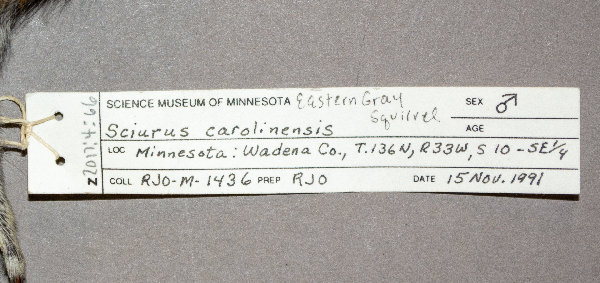 SCIENCE MUSEUM OF MINNESOTA Eastern Gray Squirrel SEX ♂
Sciurus carolinensis AGE
LOC Minnesota: Wadena Co., T.136N, R33W, S 10 - SE 1/4
COLL RJO-M-1436 PREP RJO DATE 15 NOV. 1991
Z 2017:4:66